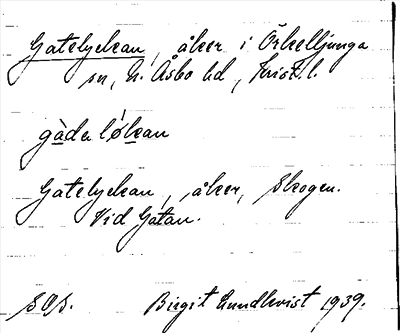 Gatelyckan, åker i Örkelljunga
sn, N. Åsbo hd, Krist. l.
gàdeló̱kan
Gatelyckan, åker, Skogen.
Vid Gatan.
Birgit Lundkvist, 1939.